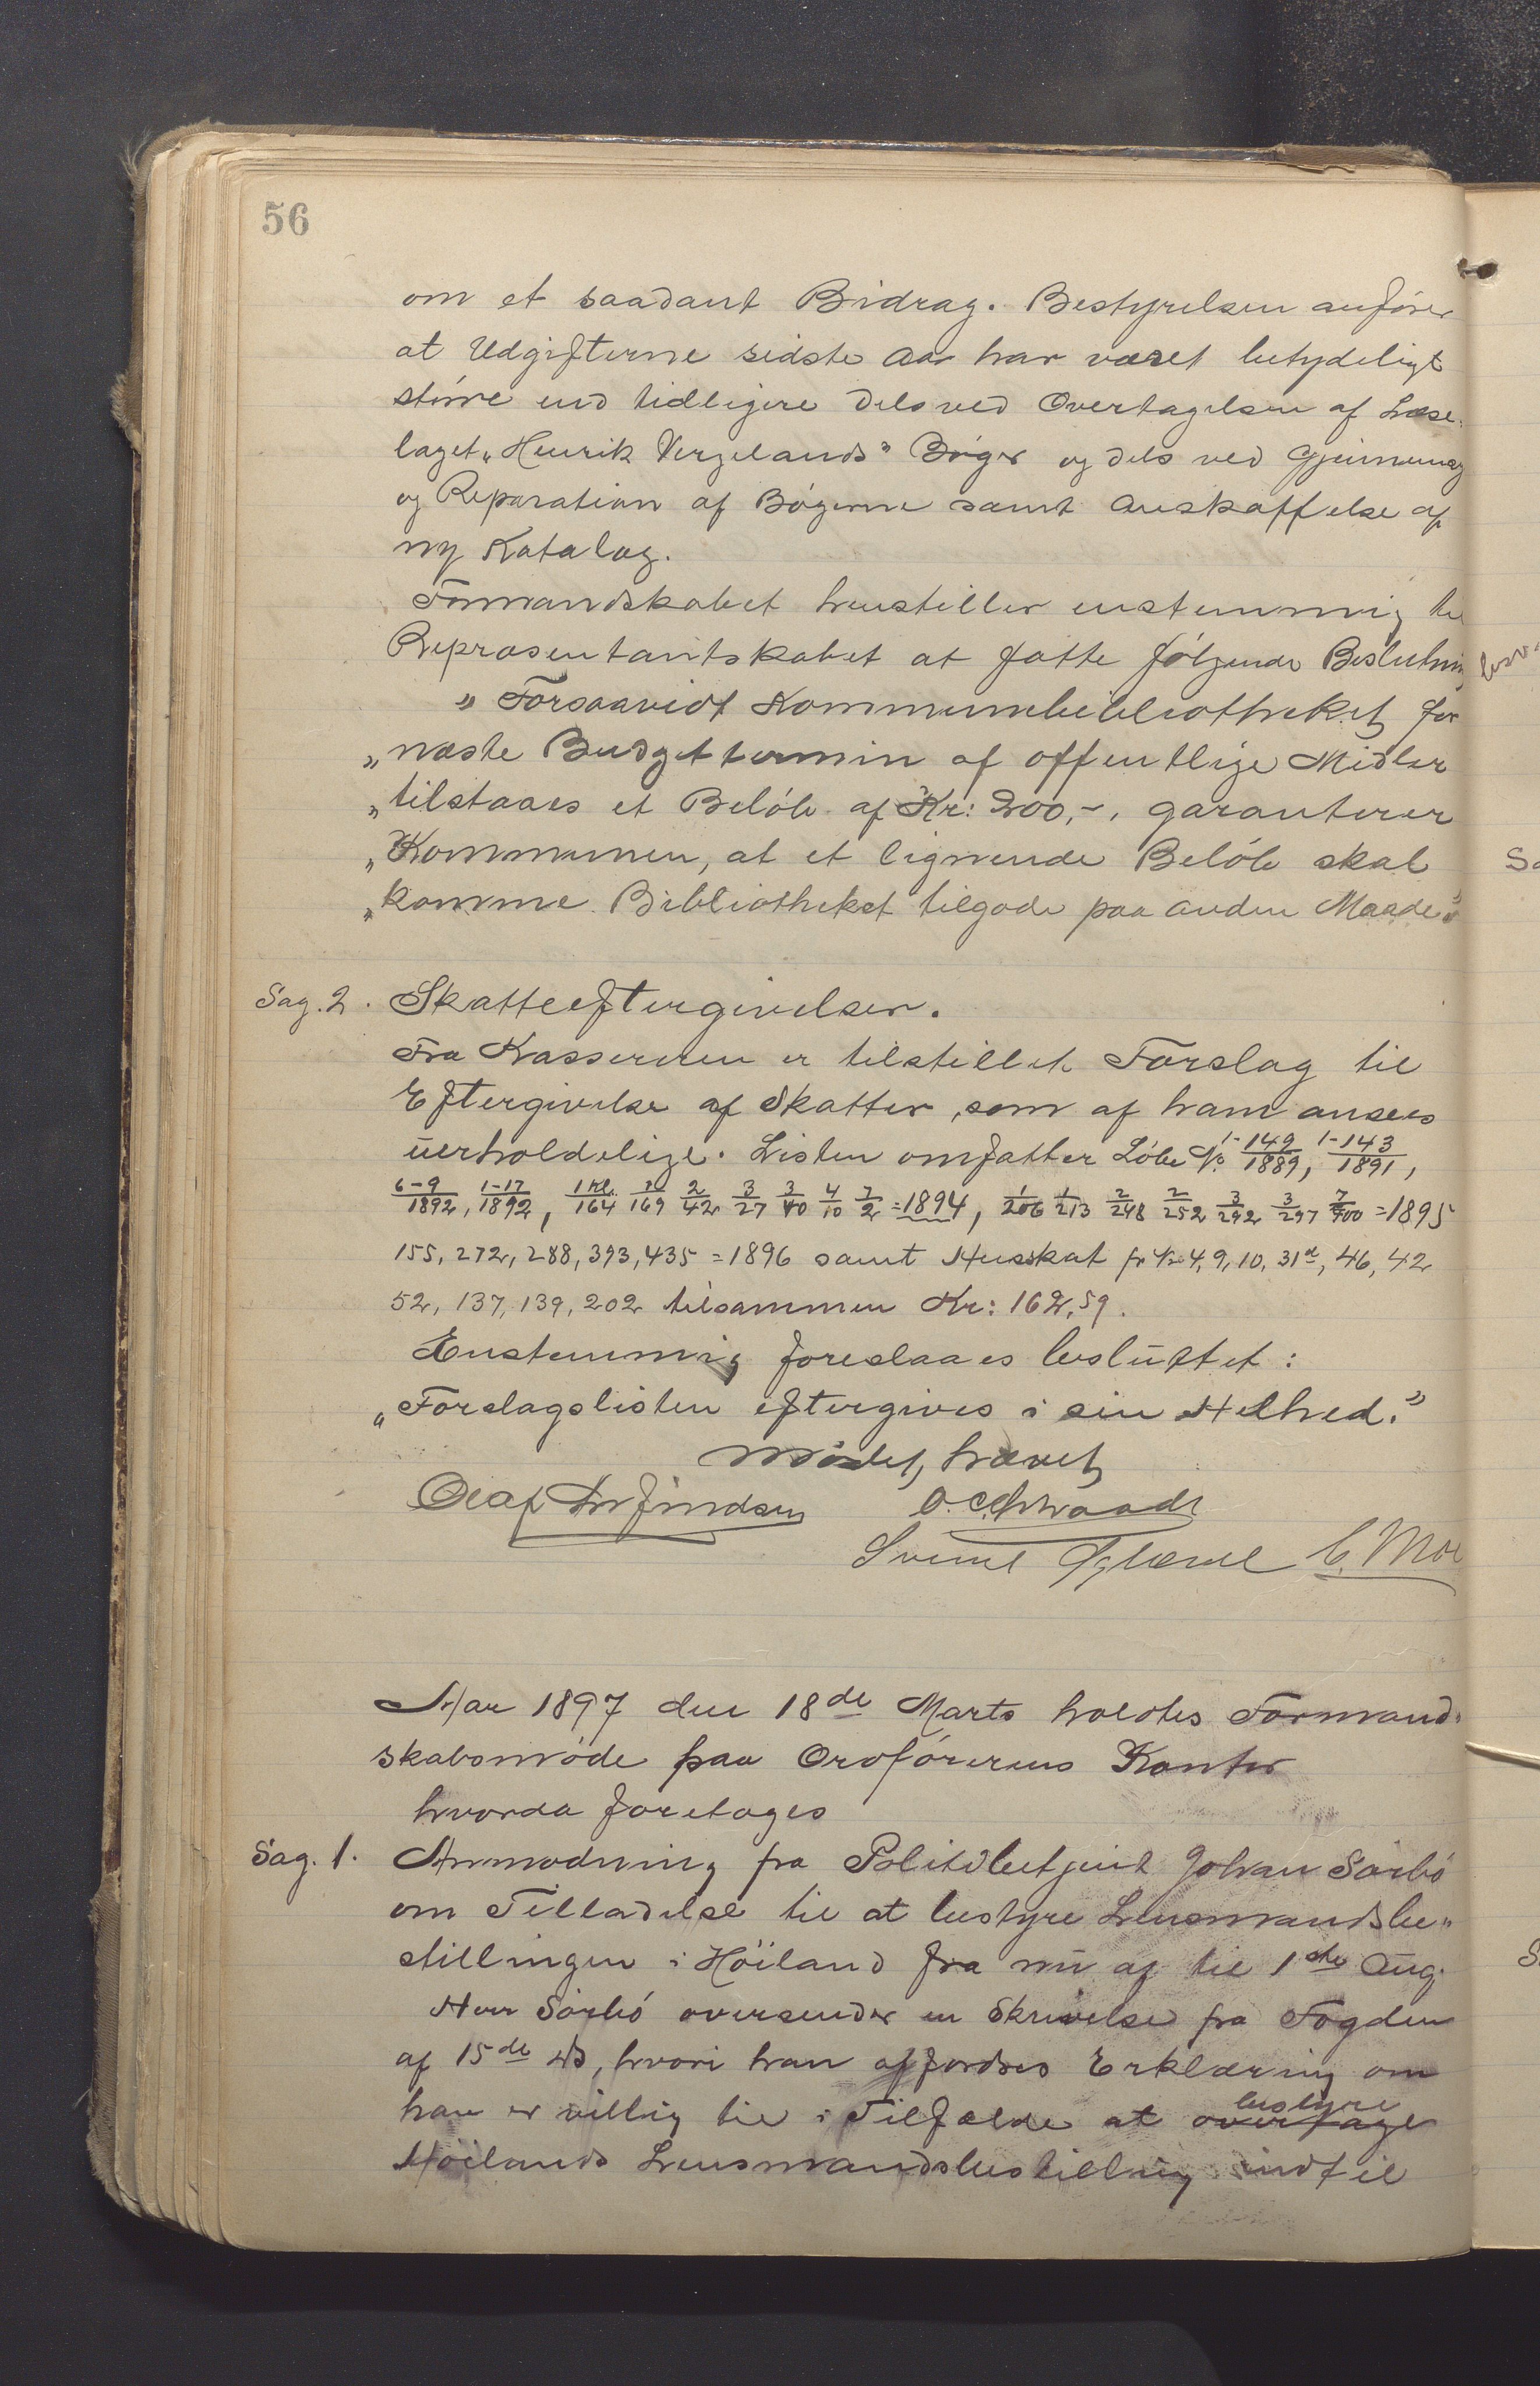 56
om et saadant Bidrag. Bestyrelsen anfører
at Udgifterne sidste Aar har været betydeligt
større end tidligere dels ved Overtagelsen af Læse-
laget „Henrik Vergelands" Bøger og dels ved Gjennemsyn
og Reparation af Bøgerne samt Anskaffelse af
ny Katalog.
Formandskabet henstiller enstemmig til
Repræsentantskabet at fatte følgende Beslutning
„Forsaavidt Kommunebibliotheket for
„næste Budgettermin af offentlige Midler
„tilstaaes et Beløb af Kr: 200,-, garanterer
„Kommunen, at et lignende Beløb skal
„komme Bibliotheket tilgode paa anden Maade"
Sag. 2. Skatteeftergivelser.
Fra Kassereren er tilstillet Forslag til
Eftergivelse af Skatter, som af ham ansees
uerholdelige. Listen omfatter Løbe No 1-149/1889, 1-143/1891,
6-9/1892, 1-17/1892, 1 Kl./164 2/169 2/42 3/27 3/40 4/10 7/2 = 1894, 1/206 1/213 2/248 2/252 3/292 3/297 7/400 = 1895
155, 272, 288, 393, 435 = 1896 samt Husskat fr No 4, 9, 10, 31d, 46, 42
52, 137, 139, 202 tilsammen Kr: 162,59.
Enstemmig foreslaaes besluttet:
„Forslagslisten eftergives i sin Helhed."
Mødet hævet
Svend
C. Moe
Aar 1897 den 18de Marts holdtes Formand-
skabsmøde paa Ordførerens Kontor
hvorda foretoges
Sag. 1. Anmodning fra Politibetjent Johan Sørbø
om Tilladelse til at bestyre Lensmandsbe-
stillingen i Høiland fra nu af til 1ste Aug.
Herr Sørbø oversender en Skrivelse fra Fogden
af 15de ds, hvori han affordres Erklæring om
han er villig til i Tilfælde at overtage bestyre
Høilands Lensmandsbestilling indtil